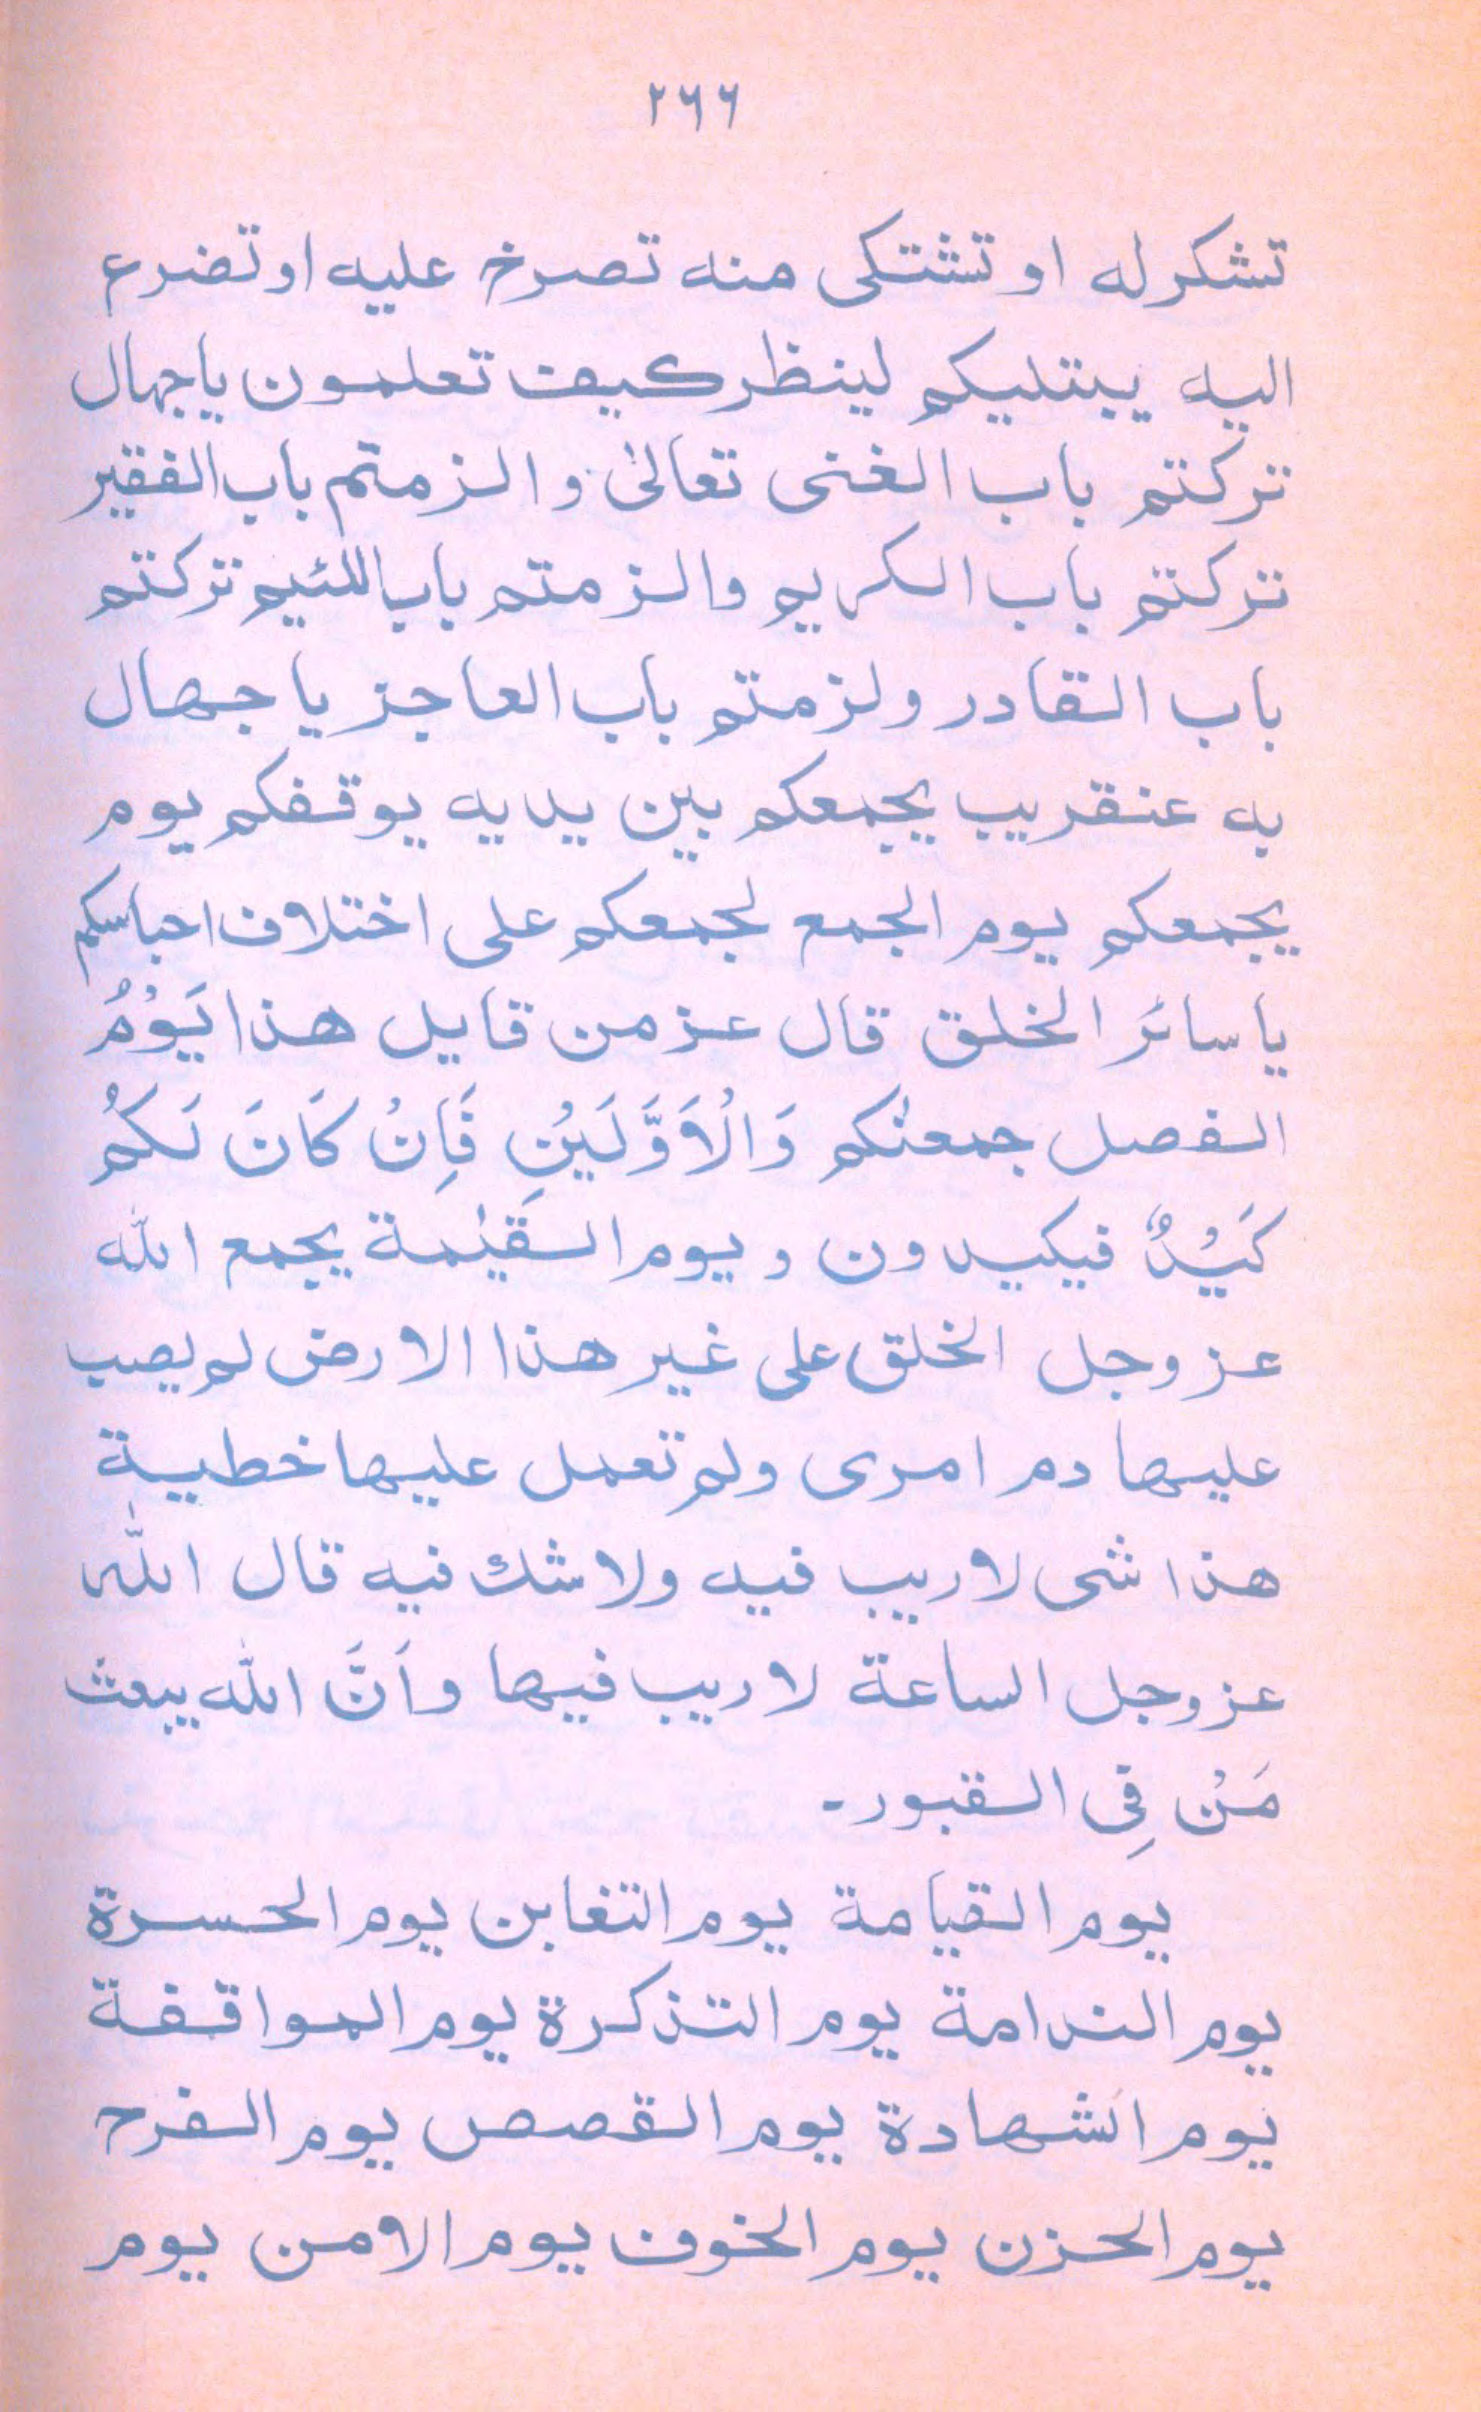 ٢٦٦
تشكر له او تشتكى منه تصرخ عليه او تضرع
اليه يبتليكم لينظر كيف تعلمون ياجهال
تركتم باب الغنى تعالىٰ و الزمتم باب الفقير
تركتم باب الكريم والزمتم باب اللئيم تركتم
باب القادر ولزمتم باب العاجز يا جهال
به عنقريب يجمعكم بين يديه يوقفكم يوم
يجمعكم يوم الجمع لجمعكم على اختلاف اجناسكم
يا سائر الخلق قال عز من قايل هذا يَوْمُ
الفصل جمعنٰكم وَالْاَوَّلَيْنِ فَاِنْ كَانَ لَكُم
كَيْدٌ فيكيدون و يوم القيٰمة يجمع الله
عز وجل الخلق على غير هذا الارض لم يصب
عليها دم امرى ولم تعمل عليها خطيية
هذا شى لا ريب فيه ولا شك فيه قال اللّٰه
عز وجل الساعة لا ريب فيها و اَنَّ الله يبعث
مَنْ فِى القبور۔
يوم القيامة يوم التغابن يوم الحسرة
يوم الندامة يوم التذكرة يوم المواقفة
يوم الشهادة يوم القصص يوم الفرح
يوم الحزن يوم الخوف يوم الامن يوم